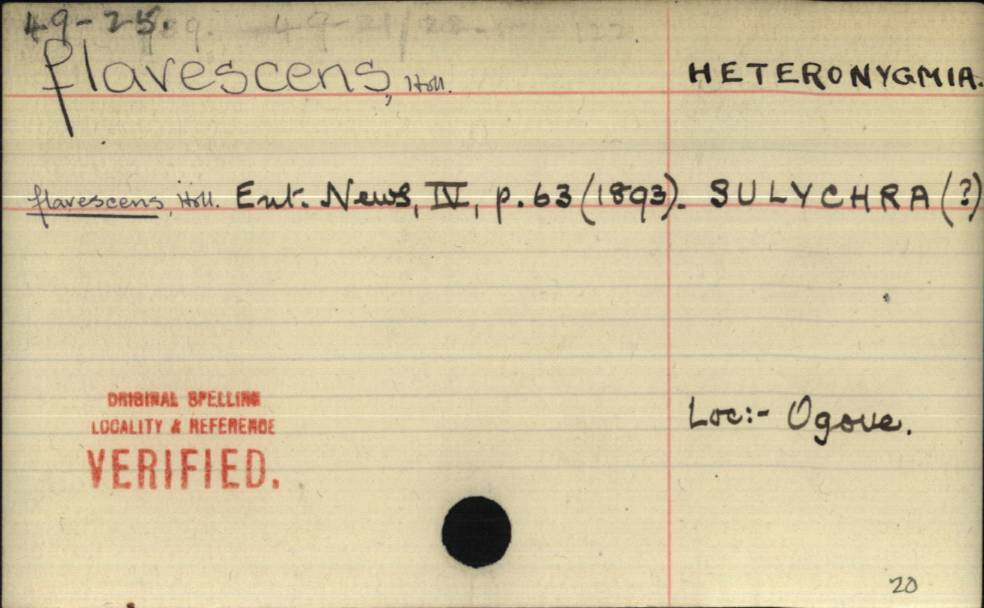 49-25.
flavescens, Holl. HETERONYGMIA.
flavescens, Holl. Ent. News, IV, p. 63 (1893). SULYCHRA (?)
ORIGINAL SPELLING
LOCALITY & REFERENCE
VERIFIED.
Loc:- Ogove.
20